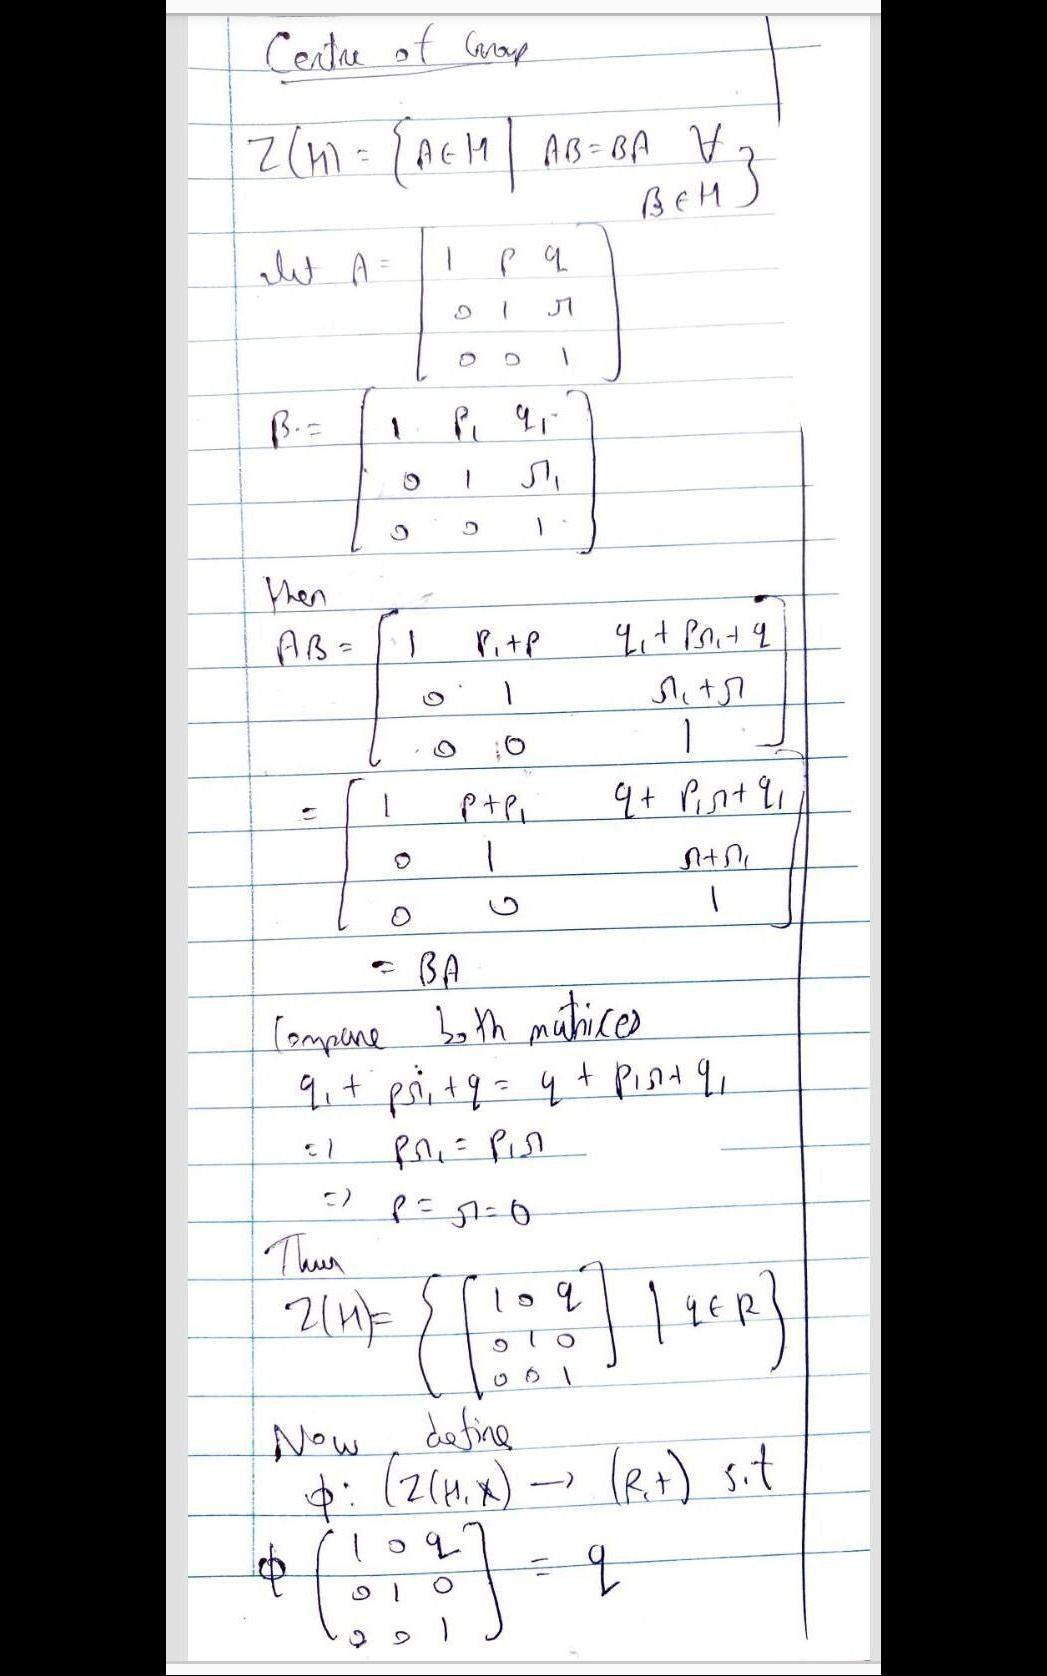 Centre of Group
Z(H) = { A ∈ H | AB = BA ∀
B ∈ H }
let A = [ 1 p q
0 1 r
0 0 1 ]
B = [ 1 p₁ q₁
0 1 r₁
0 0 1 ]
then
AB = [ 1 p₁+p q₁+pr₁+q
0 1 r₁+r
0 0 1 ]
= [ 1 p+p₁ q+p₁r+q₁
0 1 r+r₁
0 0 1 ]
= BA
Compare both matrices
q₁ + pr₁ + q = q + p₁r + q₁
=) pr₁ = p₁r
=) p = r = 0
Thus
Z(H) = { [ 1 0 q
0 1 0
0 0 1 ] | q ∈ R }
Now define
ϕ: (Z(H, x) → (R, +) s.t
ϕ [ 1 0 q
0 1 0
0 0 1 ] = q